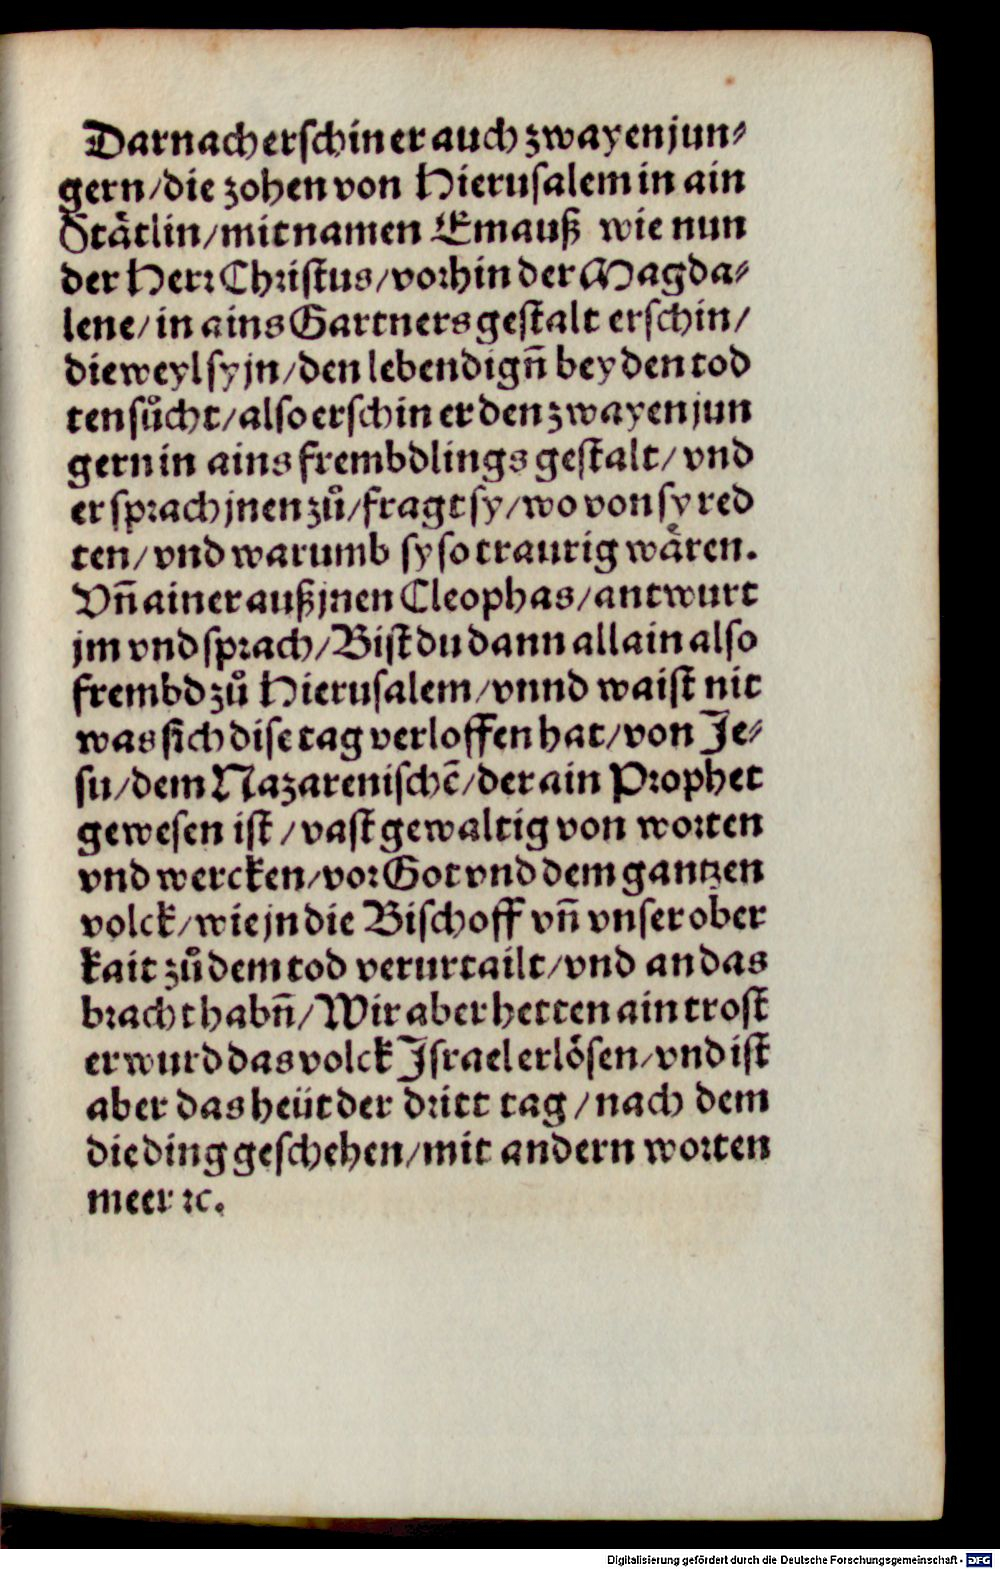 Darnach erschin er auch zwayen jun⸗
gern/die zohen von Hierusalem in ain
Stätlin/mit namen Emauß wie nun
der Herr Christus/vorhin der Magda⸗
lene/in ains Gartners gestalt erschin/
dieweyl sy jn/den lebendigñ bey den tod
ten sůcht/also erschin er den zwayen jun
gern in ains frembdlings gestalt/vnd
er sprach jnen zů/fragt sy/wo von sy red
ten/vnd warumb sy so traurig wären.
Vñ ainer auß jnen Cleophas/antwurt
jm vnd sprach/Bist du dann allain also
frembd zů Hierusalem/vnnd waist nit
was sich dise tag verloffen hat/von Je⸗
su/dem Nazarenischẽ/der ain Prophet
gewesen ist/vast gewaltig von worten
vnd wercken/vor Got vnd dem gantzen
volck/wie jn die Bischoff vñ vnser ober
kait zů dem tod verurtailt/vnd an das
bracht habñ/Wir aber hetten ain trost
er wurd das volck Israel erlösen/vnd ist
aber das heüt der dritt tag/nach dem
die ding geschehen/mit andern worten
meer ꝛc.
Digitalisierung gefördert durch die Deutsche Forschungsgemeinschaft - DFG